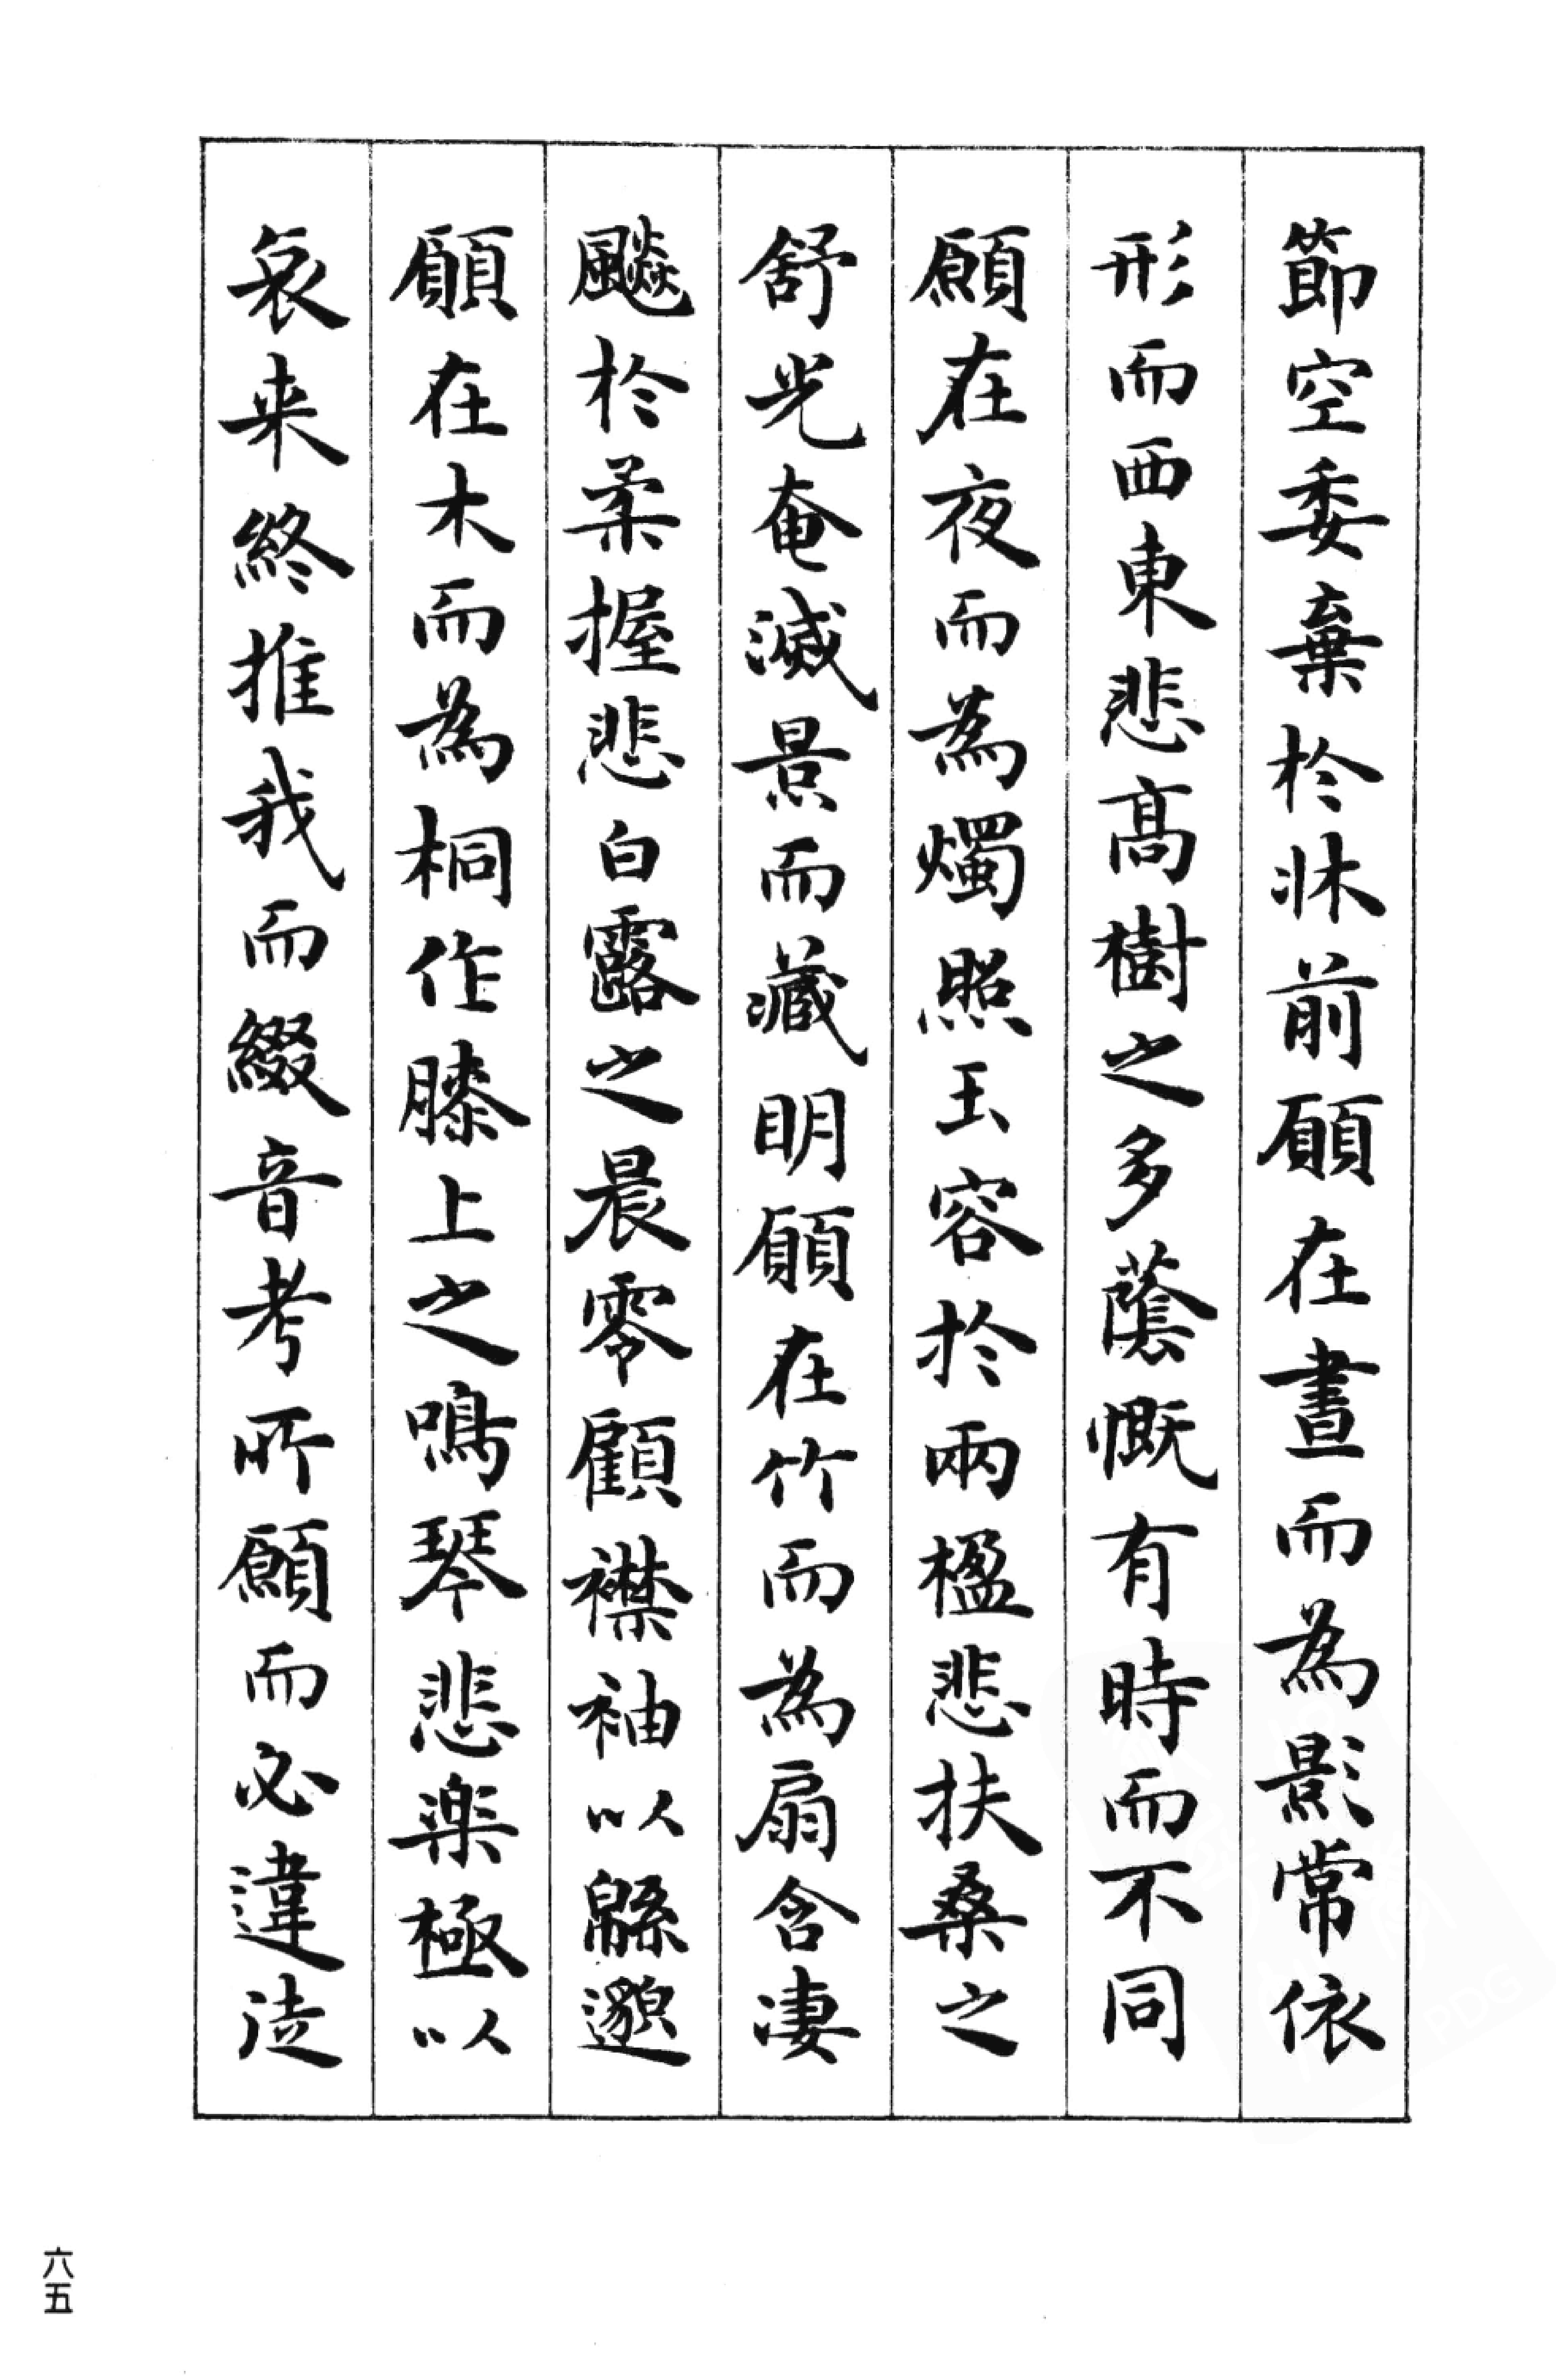 節空委棄於牀前願在晝而為影常依
形而西東悲高樹之多蔭慨有時而不同
願在夜而為燭照玉容於兩楹悲扶桑之
舒光奄滅景而藏明願在竹而為扇含淒
飈於柔握悲白露之晨零顧襟袖以緜邈
願在木而為桐作膝上之鳴琴悲樂極以
哀来終推我而綴音考所願而必違徒
六五